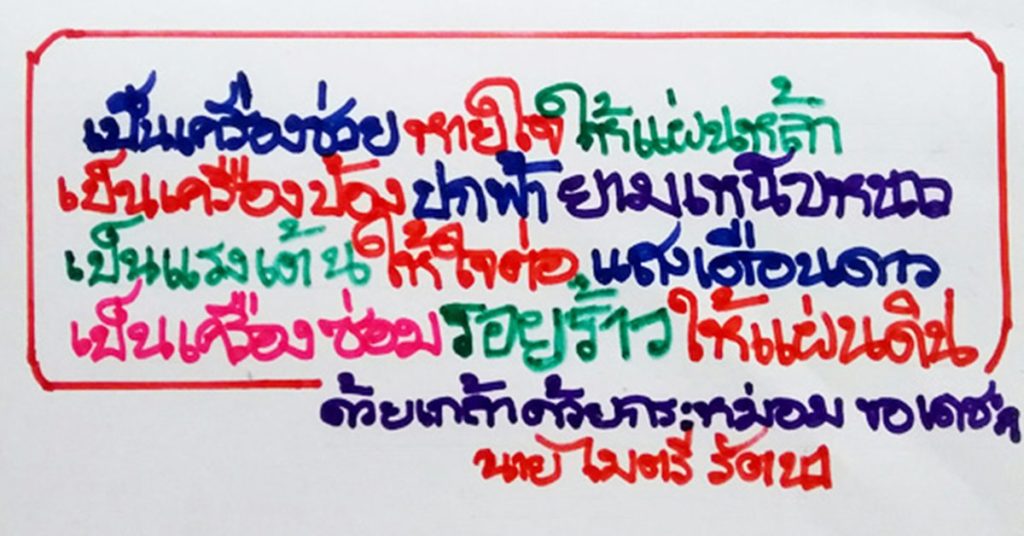 เป็นเครื่องช่วยหายใจให้แผ่นหล้า
เป็นเครื่องป้องปกฟ้ายามเหน็บหนาว
เป็นแรงเต้นให้ใจต่อแสงเดือนดาว
เป็นเครื่องซ่อมรอยร้าวให้แผ่นดิน
ด้วยเกล้าด้วยกระหม่อม ขอเดชะ
นายไมตรี รัตนา